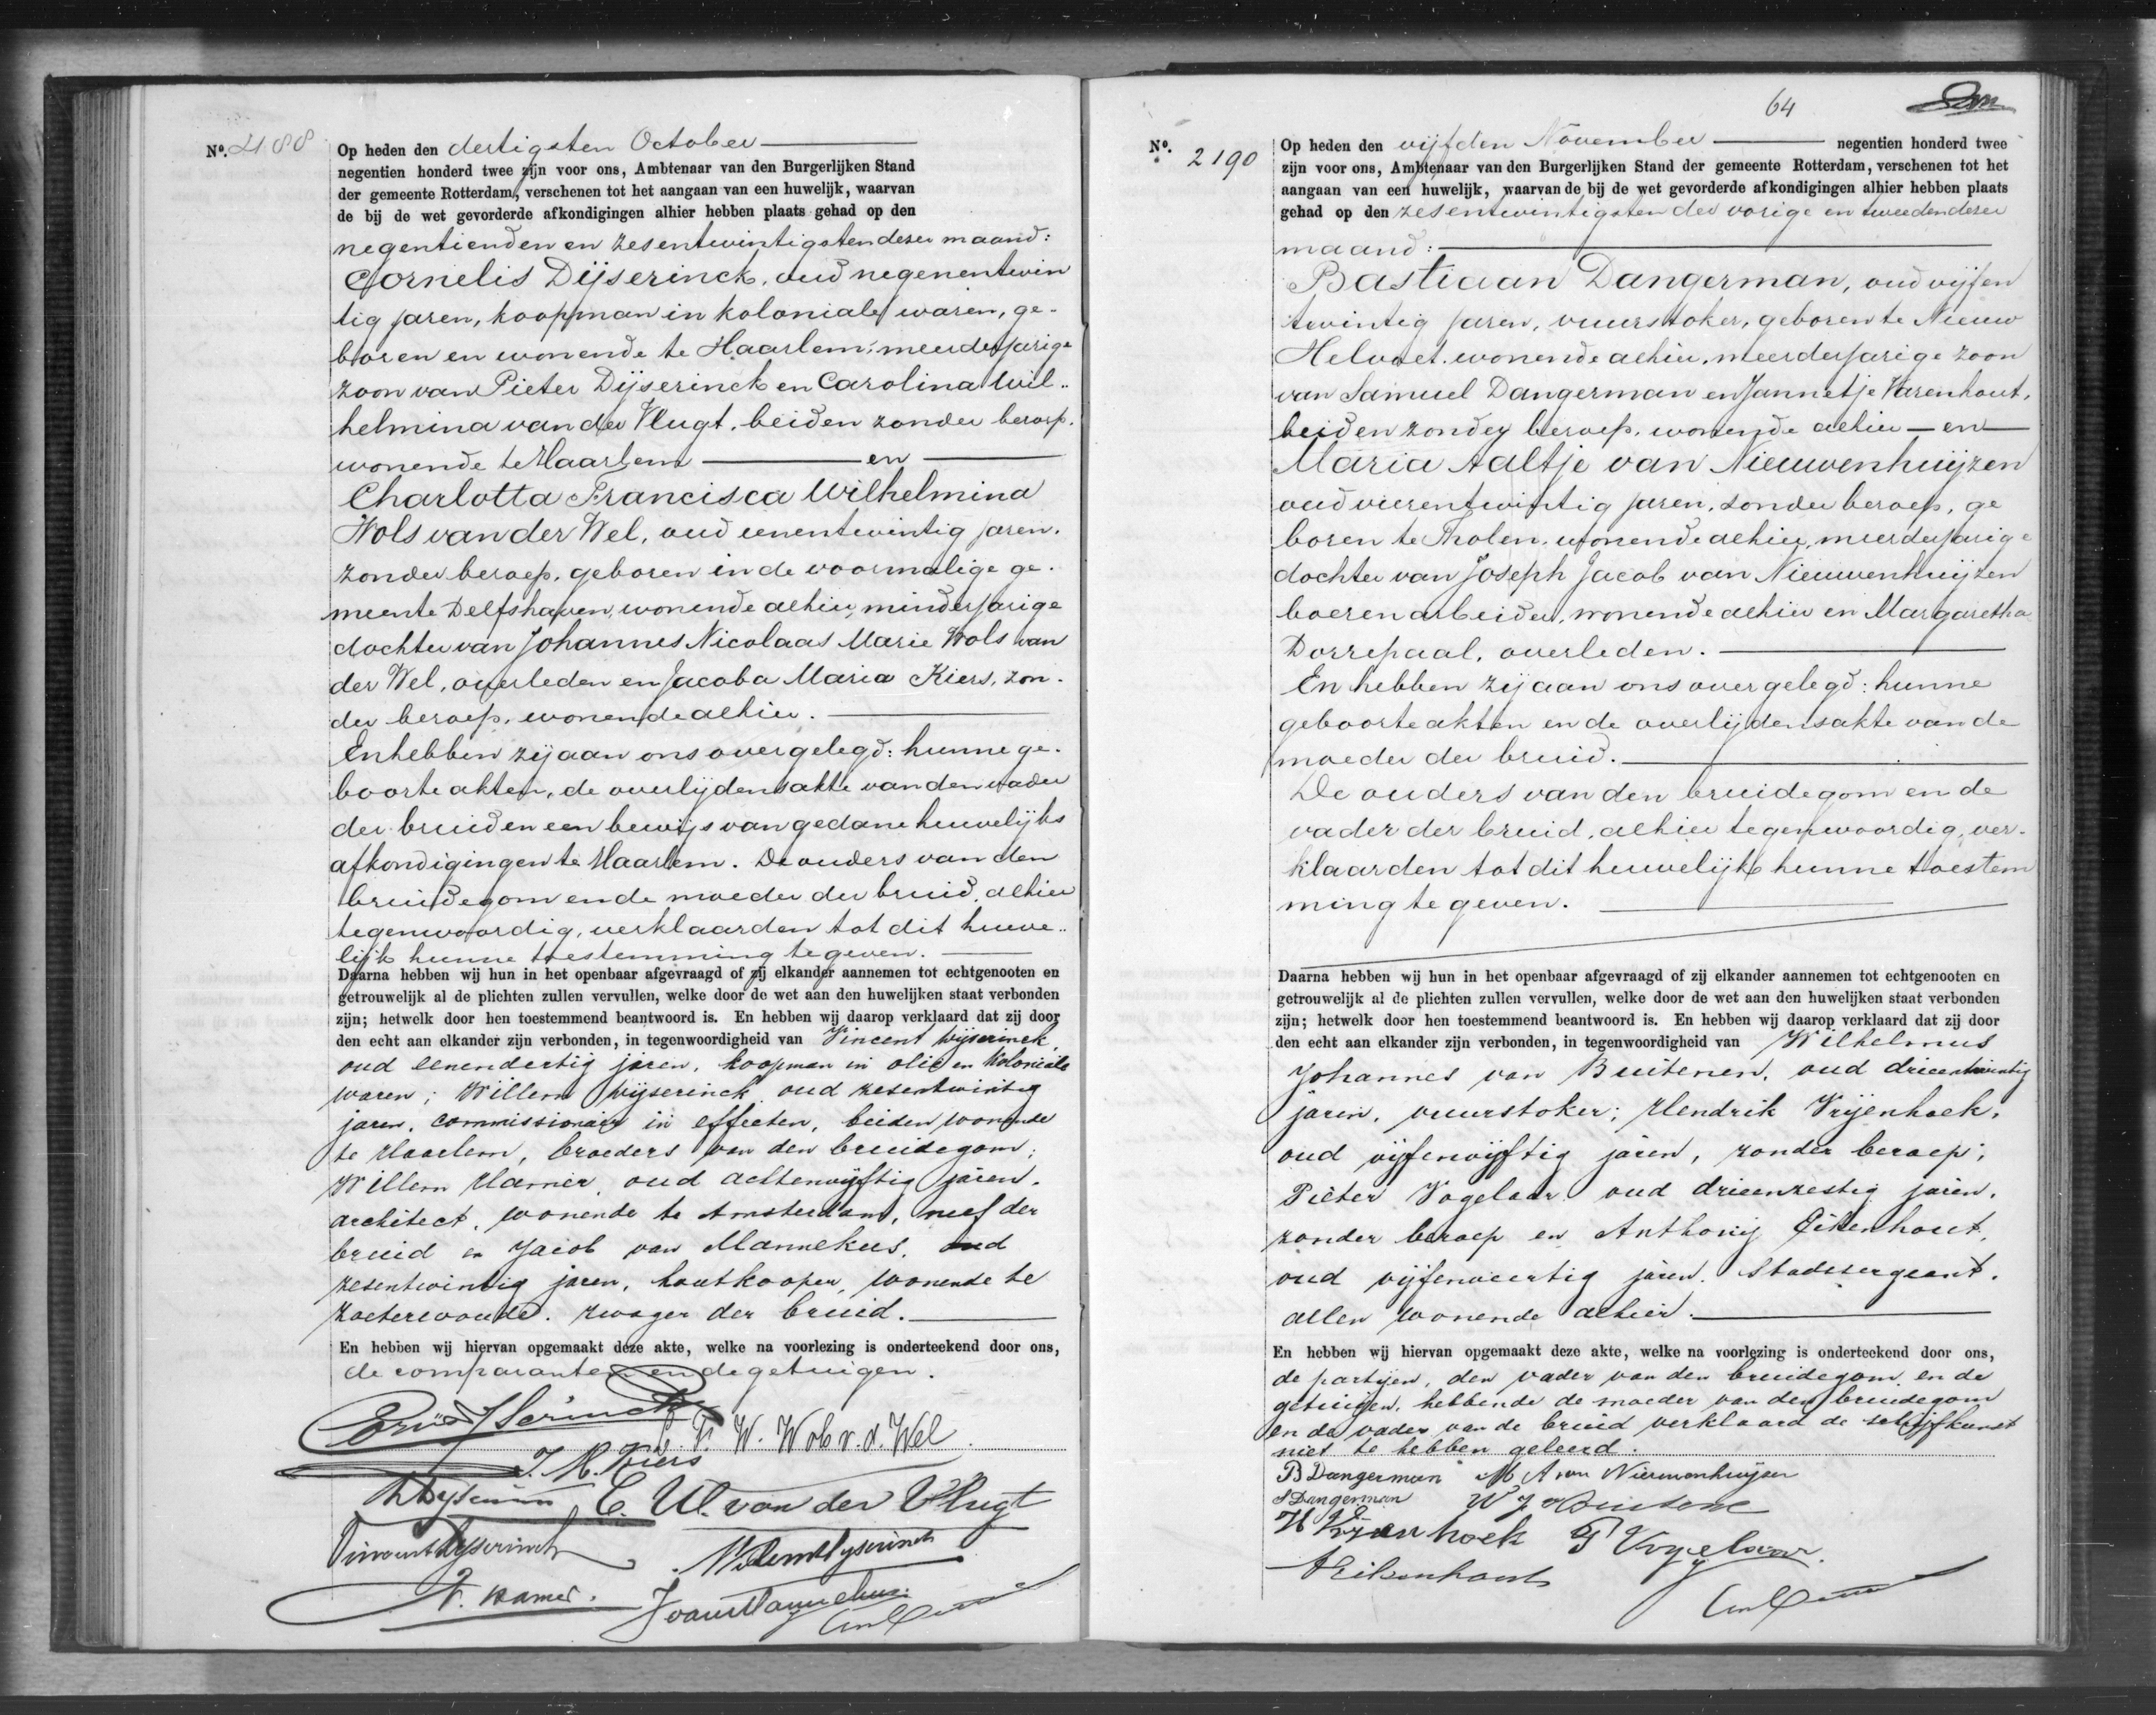 Nº. 2188
Op heden den dertigsten October
negentien honderd twee zijn voor ons, Ambtenaar van den Burgerlijken Stand
der gemeente Rotterdam, verschenen tot het aangaan van een huwelijk, waarvan
de bij de wet gevorderde afkondigingen alhier hebben plaats gehad op den
negentienden en zesentwintigsten dezer maand:
Cornelis Dijserinck, oud negenentwin
tig jaren, koopman in koloniale waren, ge-
boren en wonende te Haarlem, meerderjarige
zoon van Pieter Dijserinck en Carolina Wil-
helmina van der Vlugt, beiden zonder beroep,
wonende te Haarlem en
Charlotta Francisca Wilhelmina
Wols van der Wel, oud eenentwintig jaren,
zonder beroep, geboren in de voormalige ge-
meente Delfshaven, wonende alhier, minderjarige
dochter van Johannes Nicolaas Marie Wols van
der Wel, overleden en Jacoba Maria Kiers, zon-
der beroep, wonende alhier.
En hebben zij aan ons overgelegd: hunne ge-
boorteakten, de overlijdensakte van den vader
der bruid en een bewijs van gedane huwelijks
afkondigingen te Haarlem. De ouders van den
bruidegom en de moeder der bruid, alhier
tegenwoordig, verklaarden tot dit huwe-
lijk hunne toestemming te geven.
Daarna hebben wij hun in het openbaar afgevraagd of zij elkander aannemen tot echtgenooten en
getrouwelijk al de plichten zullen vervullen, welke door de wet aan den huwelijken staat verbonden
zijn; hetwelk door hen toestemmend beantwoord is. En hebben wij daarop verklaard dat zij door
den echt aan elkander zijn verbonden, in tegenwoordigheid van Vincent Dijserinck,
oud eenendertig jaren, koopman in olie en koloniale
waren; Willem Dijserinck oud zesentwintig
jaren, commissionair in effecten, beiden wonende
te Haarlem, broeders van den bruidegom;
Willem Hamer, oud achtenvijftig jaren,
architect, wonende te Amsterdam, neef der
bruid en Jacob van Mannekus, oud
zesentwintig jaren, houtkooper, wonende te
Zoeterwoude, zwager der bruid.
En hebben wij hiervan opgemaakt deze akte, welke na voorlezing is onderteekend door ons,
de comparanten en de getuigen.
Corns Dyserinck
C. F. W. Wols v. d. Wel
J. M. Kiers
P Dyserinck C. W. van der Vlugt
Vincent Dyserinck Willem Dyserinck
W. Hamer. J van Mannekus
64
Nº. 2190
Op heden den vijfden November negentien honderd twee
zijn voor ons, Ambtenaar van den Burgerlijken Stand der gemeente Rotterdam, verschenen tot het
aangaan van een huwelijk, waarvan de bij de wet gevorderde afkondigingen alhier hebben plaats
gehad op den zesentwintigsten der vorige en tweeden dezer
maand:
Bastiaan Dangerman, oud vijfen
twintig jaren, vuurstoker, geboren te Nieuw
Helvoet, wonende alhier, meerderjarige zoon
van Samuel Dangerman en Jannetje Varenhout,
beiden zonder beroep, wonende alhier en
Maria Aaltje van Nieuwenhuijzen
oud vierentwintig jaren, zonder beroep, ge
boren te Tholen, wonende alhier, meerderjarige
dochter van Joseph Jacob van Nieuwenhuijzen
boerenarbeider, wonende alhier en Margaretha
Dorrepaal, overleden.
En hebben zij aan ons overgelegd: hunne
geboorteakten en de overlijdensakte van de
moeder der bruid.
De ouders van den bruidegom en de
vader der bruid, alhier tegenwoordig, ver-
klaarden tot dit huwelijk hunne toestem
ming te geven.
Daarna hebben wij hun in het openbaar afgevraagd of zij elkander aannemen tot echtgenooten en
getrouwelijk al de plichten zullen vervullen, welke door de wet aan den huwelijken staat verbonden
zijn; hetwelk door hen toestemmend beantwoord is. En hebben wij daarop verklaard dat zij door
den echt aan elkander zijn verbonden, in tegenwoordigheid van Wilhelmus
Johannes van Buitenen, oud drieentwintig
jaren, vuurstoker; Hendrik Vrijenhoek,
oud vijfenvijftig jaren, zonder beroep;
Pieter Vogelaar, oud drieenzestig jaren,
zonder beroep en Anthonij Eikenhout,
oud vijfenveertig jaren, stadssergeant,
allen wonende alhier.
En hebben wij hiervan opgemaakt deze akte, welke na voorlezing is onderteekend door ons,
de partijen, den vader van den bruidegom en de
getuigen, hebbende de moeder van den bruidegom
en de vader van de bruid verklaard de schrijfkunst
niet te hebben geleerd.
B Dangerman M A van Nieuwenhuijzen
S Dangerman W J v Buitenen
H Vrijenhoek P Vogelaar.
A Eikenhout